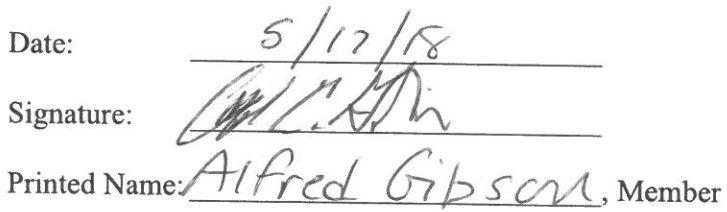 Date: 5/17/18
Signature:
Printed Name: Alfred Gibson, Member